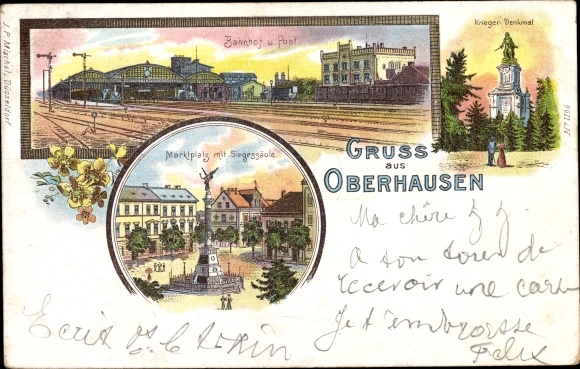 Bahnhof u. Post.
Krieger-Denkmal
J. P. Mischel, Düsseldorf.
Marktplatz mit Siegessäule.
GRUSS
aus
OBERHAUSEN
Ma chère
A ton de
recevoir une carte
Je t'embrasse
Felix
Ecrit